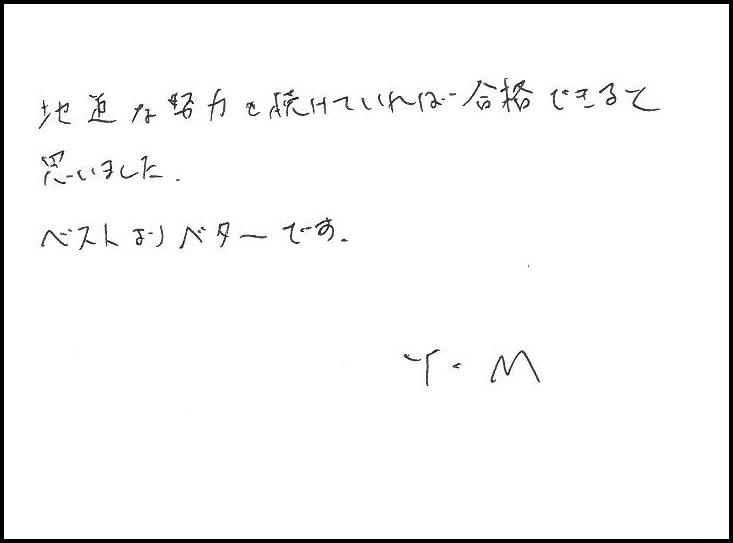 地道な努力を続けていれば合格できると
思いました.
ベストよりベターです.
Y.M